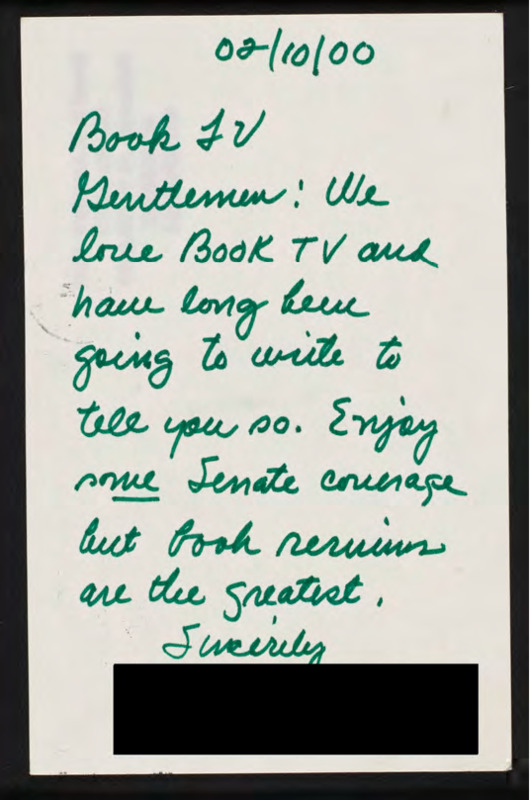 02/10/00
Book TV
Gentlemen: We
love Book TV and
have long been
going to write to
tell you so. Enjoy
some Senate coverage
but book reviews
are the greatest.
Sincerely